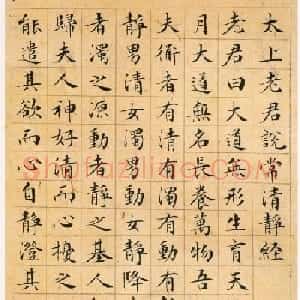 太上老君說常清靜經
老君曰大道无形生育天
月大道無名長養萬物吾
夫衜者有清有濁有動
靜男清女濁男動女靜降
者濁之源動者靜之基人
歸夫人神好清而心擾之
能遣其欲而心自靜澄其